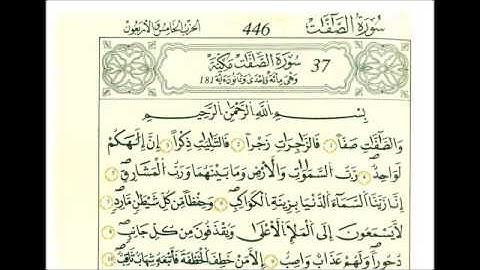 سُورَةُ الصَّافَّاتِ 446 الحزب الخامس والأربعون
37 سُورَةُ الصَّافَّاتِ مَكِّيَّةٌ
وَهِيَ مِائَةٌ وَإِحْدَى وَثَمَانُونَ آيَة 181
بِسْمِ اللَّهِ الرَّحْمَنِ الرَّحِيمِ
وَالصَّافَّاتِ صَفّاً ١ فَالزَّاجِرَاتِ زَجْراً ٢ فَالتَّالِيَاتِ ذِكْراً ٣ إِنَّ إِلَهَكُمْ
لَوَاحِدٌ ٤ رَبُّ السَّمَوَاتِ وَالْأَرْضِ وَمَا بَيْنَهُمَا وَرَبُّ الْمَشَارِقِ ٥
إِنَّا زَيَّنَّا السَّمَاءَ الدُّنْيَا بِزِينَةِ الْكَوَاكِبِ ٦ وَحِفْظاً مِنْ كُلِّ شَيْطَانٍ مَارِدٍ ٧
لَا يَسَّمَّعُونَ إِلَى الْمَلَإِ الْأَعْلَى وَيُقْذَفُونَ مِنْ كُلِّ جَانِبٍ ٨
دُحُوراً وَلَهُمْ عَذَابٌ وَاصِبٌ ٩ إِلَّا مَنْ خَطِفَ الْخَطْفَةَ فَأَتْبَعَهُ شِهَابٌ ثَاقِبٌ ١٠